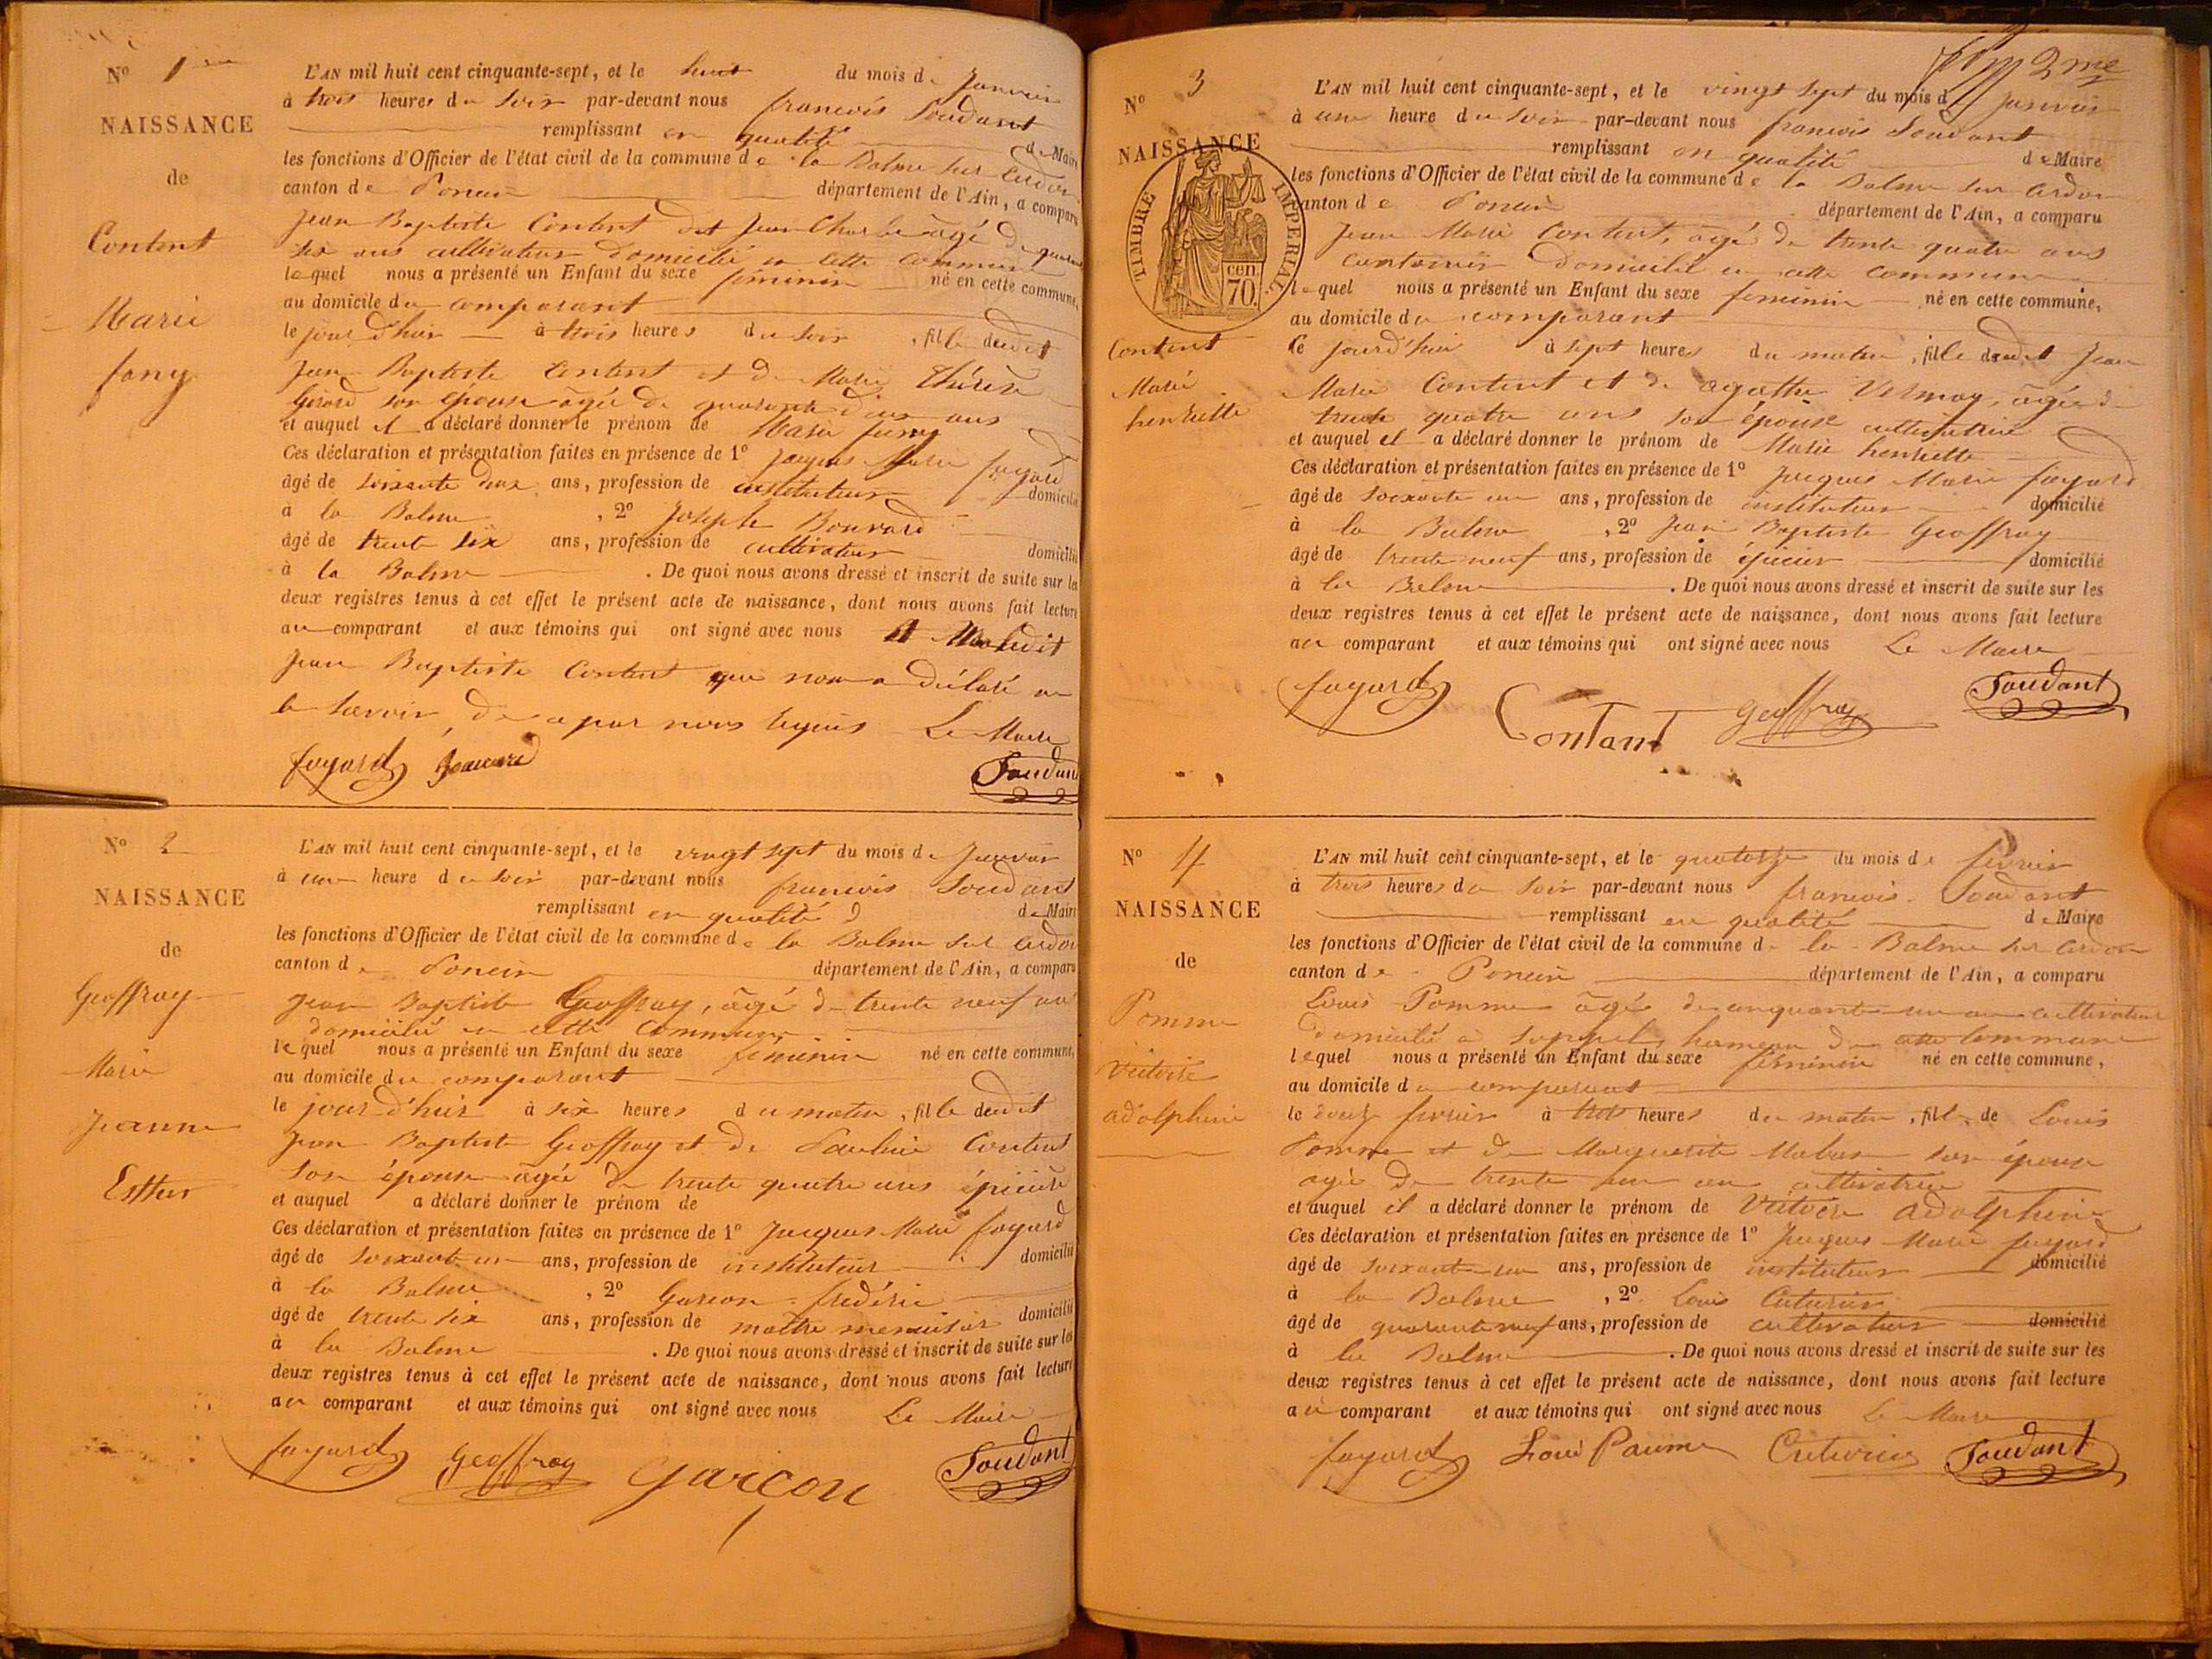 N° 1er
NAISSANCE
de
Content
Marie
fany
L'AN mil huit cent cinquante-sept, et le huit du mois de Janvier
à trois heures du soir par-devant nous francois Soudant
remplissant en qualité de Maire
les fonctions d'Officier de l'état civil de la commune de la Balme sur Cerdon
canton de Poncin département de l'Ain, a comparu
Jean Baptiste Content dit Jean Charles âgé de quarante
six ans cultivateur domicilié en cette commune
lequel nous a présenté un Enfant du sexe féminin né en cette commune,
au domicile du comparant
le jour d'hier à trois heures du soir, fille dudit
Jean Baptiste Content et de Marie Thérèse
Girard son épouse âgée de quarante deux ans
et auquel il a déclaré donner le prénom de Marie fany
Ces déclaration et présentation faites en présence de 1° Jacques Marie fayard
âgé de soixante deux ans, profession de instituteur domicilié
à la Balme, 2° Joseph Bouvard
âgé de trente six ans, profession de cultivateur domicilié
à la Balme. De quoi nous avons dressé et inscrit de suite sur les
deux registres tenus à cet effet le présent acte de naissance, dont nous avons fait lecture
au comparant et aux témoins qui ont signé avec nous et
Jean Baptiste Content que nous a déclaré ne
le savoir, de ce par nous requis Le Maire
fayard Bouvard Soudant
N° 2
NAISSANCE
de
Geoffray
Marie
Jeanne
Esther
L'AN mil huit cent cinquante-sept, et le vingt sept du mois de Janvier
à une heure du soir par-devant nous francois Soudant
remplissant en qualité de Maire
les fonctions d'Officier de l'état civil de la commune de la Balme sur Cerdon
canton de Poncin département de l'Ain, a comparu
Jean Baptiste Geoffray, âgé de trente neuf ans
domicilié en cette commune
lequel nous a présenté un Enfant du sexe féminin né en cette commune,
au domicile du comparant
le jour d'hier à six heures du matin, fille dudit
Jean Baptiste Geoffray et de Pauline Content
son épouse âgée de trente quatre ans épicière
et auquel a déclaré donner le prénom de
Ces déclaration et présentation faites en présence de 1° Jacques Marie fayard
âgé de soixante un ans, profession de instituteur domicilié
à la Balme, 2° Garcon frédéric
âgé de trente six ans, profession de maître menuisier domicilié
à la Balme. De quoi nous avons dressé et inscrit de suite sur les
deux registres tenus à cet effet le présent acte de naissance, dont nous avons fait lecture
au comparant et aux témoins qui ont signé avec nous Le Maire
fayard Geoffray Garçon Soudant
2me
N° 3
NAISSANCE
TIMBRE IMPERIAL
70 cen.
Content
Marie
henriette
L'AN mil huit cent cinquante-sept, et le vingt sept du mois de Janvier
à une heure du soir par-devant nous francois Soudant
remplissant en qualité de Maire
les fonctions d'Officier de l'état civil de la commune de la Balme sur Cerdon
canton de Poncin département de l'Ain, a comparu
Jean Marie Content, âgé de trente quatre ans
cantonnier domicilié en cette commune
lequel nous a présenté un Enfant du sexe feminin né en cette commune,
au domicile du comparant
ce jourd'hui à sept heures du matin, fille dudit Jean
Marie Content et de agathe Velmoy, âgée de
trente quatre ans son épouse cultivatrice
et auquel il a déclaré donner le prénom de Marie henriette
Ces déclaration et présentation faites en présence de 1° Jacques Marie fayard
âgé de soixante un ans, profession de instituteur domicilié
à la Balme, 2° Jean Baptiste Geoffray
âgé de trente neuf ans, profession de épicier domicilié
à la Balme. De quoi nous avons dressé et inscrit de suite sur les
deux registres tenus à cet effet le présent acte de naissance, dont nous avons fait lecture
au comparant et aux témoins qui ont signé avec nous Le Maire
fayard Contant Geoffray Soudant
N° 4
NAISSANCE
de
Pomme
Victoire
adolphine
L'AN mil huit cent cinquante-sept, et le quatorze du mois de février
à trois heures du soir par-devant nous francois Soudant
remplissant en qualité de Maire
les fonctions d'Officier de l'état civil de la commune de la Balme sur Cerdon
canton de Poncin département de l'Ain, a comparu
Louis Pomme âgé de cinquante un an cultivateur
domicilié à hameau de cette commune
lequel nous a présenté un Enfant du sexe féminin né en cette commune,
au domicile du comparant
le douze février à trois heures du matin, fille de Louis
Pomme et de Marguerite son épouse
agée de trente un an cultivatrice
et auquel il a déclaré donner le prénom de Victoire adolphine
Ces déclaration et présentation faites en présence de 1° Jacques Marie fayard
âgé de soixante un ans, profession de instituteur domicilié
à la Balme, 2° Louis Cuturier
âgé de quarante neuf ans, profession de cultivateur domicilié
à la Balme. De quoi nous avons dressé et inscrit de suite sur les
deux registres tenus à cet effet le présent acte de naissance, dont nous avons fait lecture
au comparant et aux témoins qui ont signé avec nous Le Maire
fayard Loui Paume Cuturier Soudant